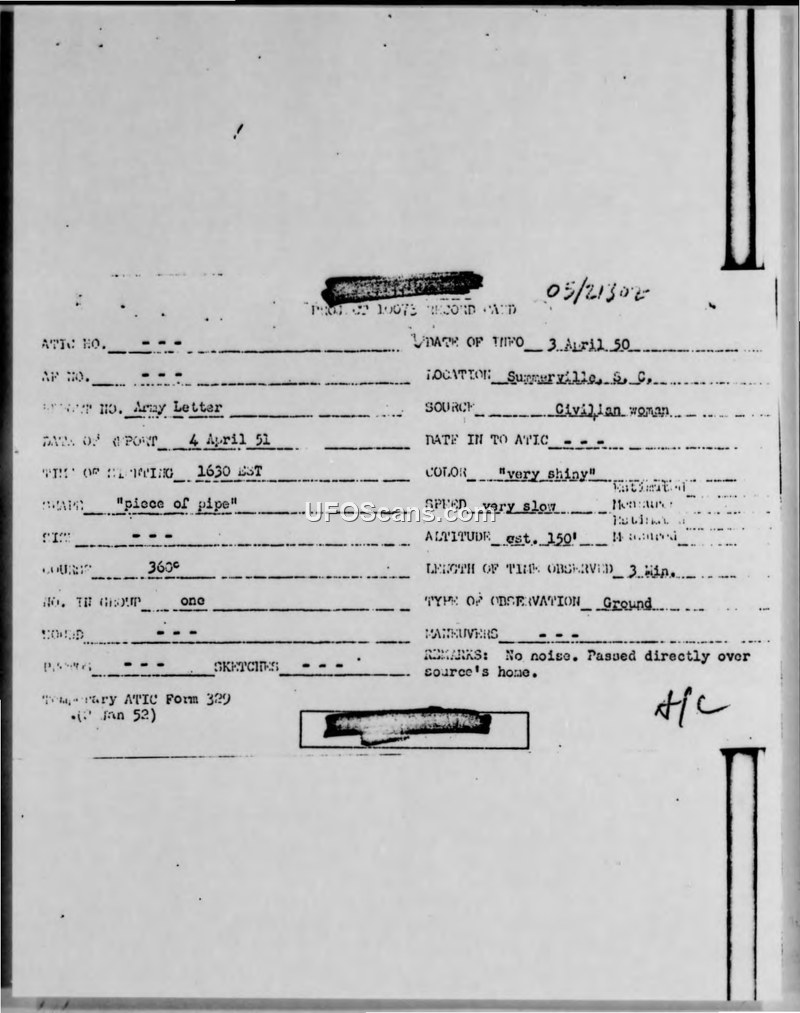 05/2130Z
PROJECT 10073 RECORD CARD
ATIC NO. - - -
DATE OF INFO 3 April 50
AF NO. - - -
LOCATION Summerville, S. C.
REPORT NO. Army Letter
SOURCE Civilian woman
DATE OF REPORT 4 April 51
DATE IN TO ATIC - - -
TIME OF SIGHTING 1630 EST
COLOR "very shiny"
SHAPE "piece of pipe"
SPEED very slow
Estimated
Measured
UFOScans.com
SIZE - - -
ALTITUDE est. 150'
Estimated
Measured
COURSE 360°
LENGTH OF TIME OBSERVED 3 Min.
NO. IN GROUP one
TYPE OF OBSERVATION Ground
SOUND - - -
MANEUVERS - - -
PHOTOS - - - SKETCHES - - -
REMARKS: No noise. Passed directly over
source's home.
Temporary ATIC Form 329
Jan 52)
A/C